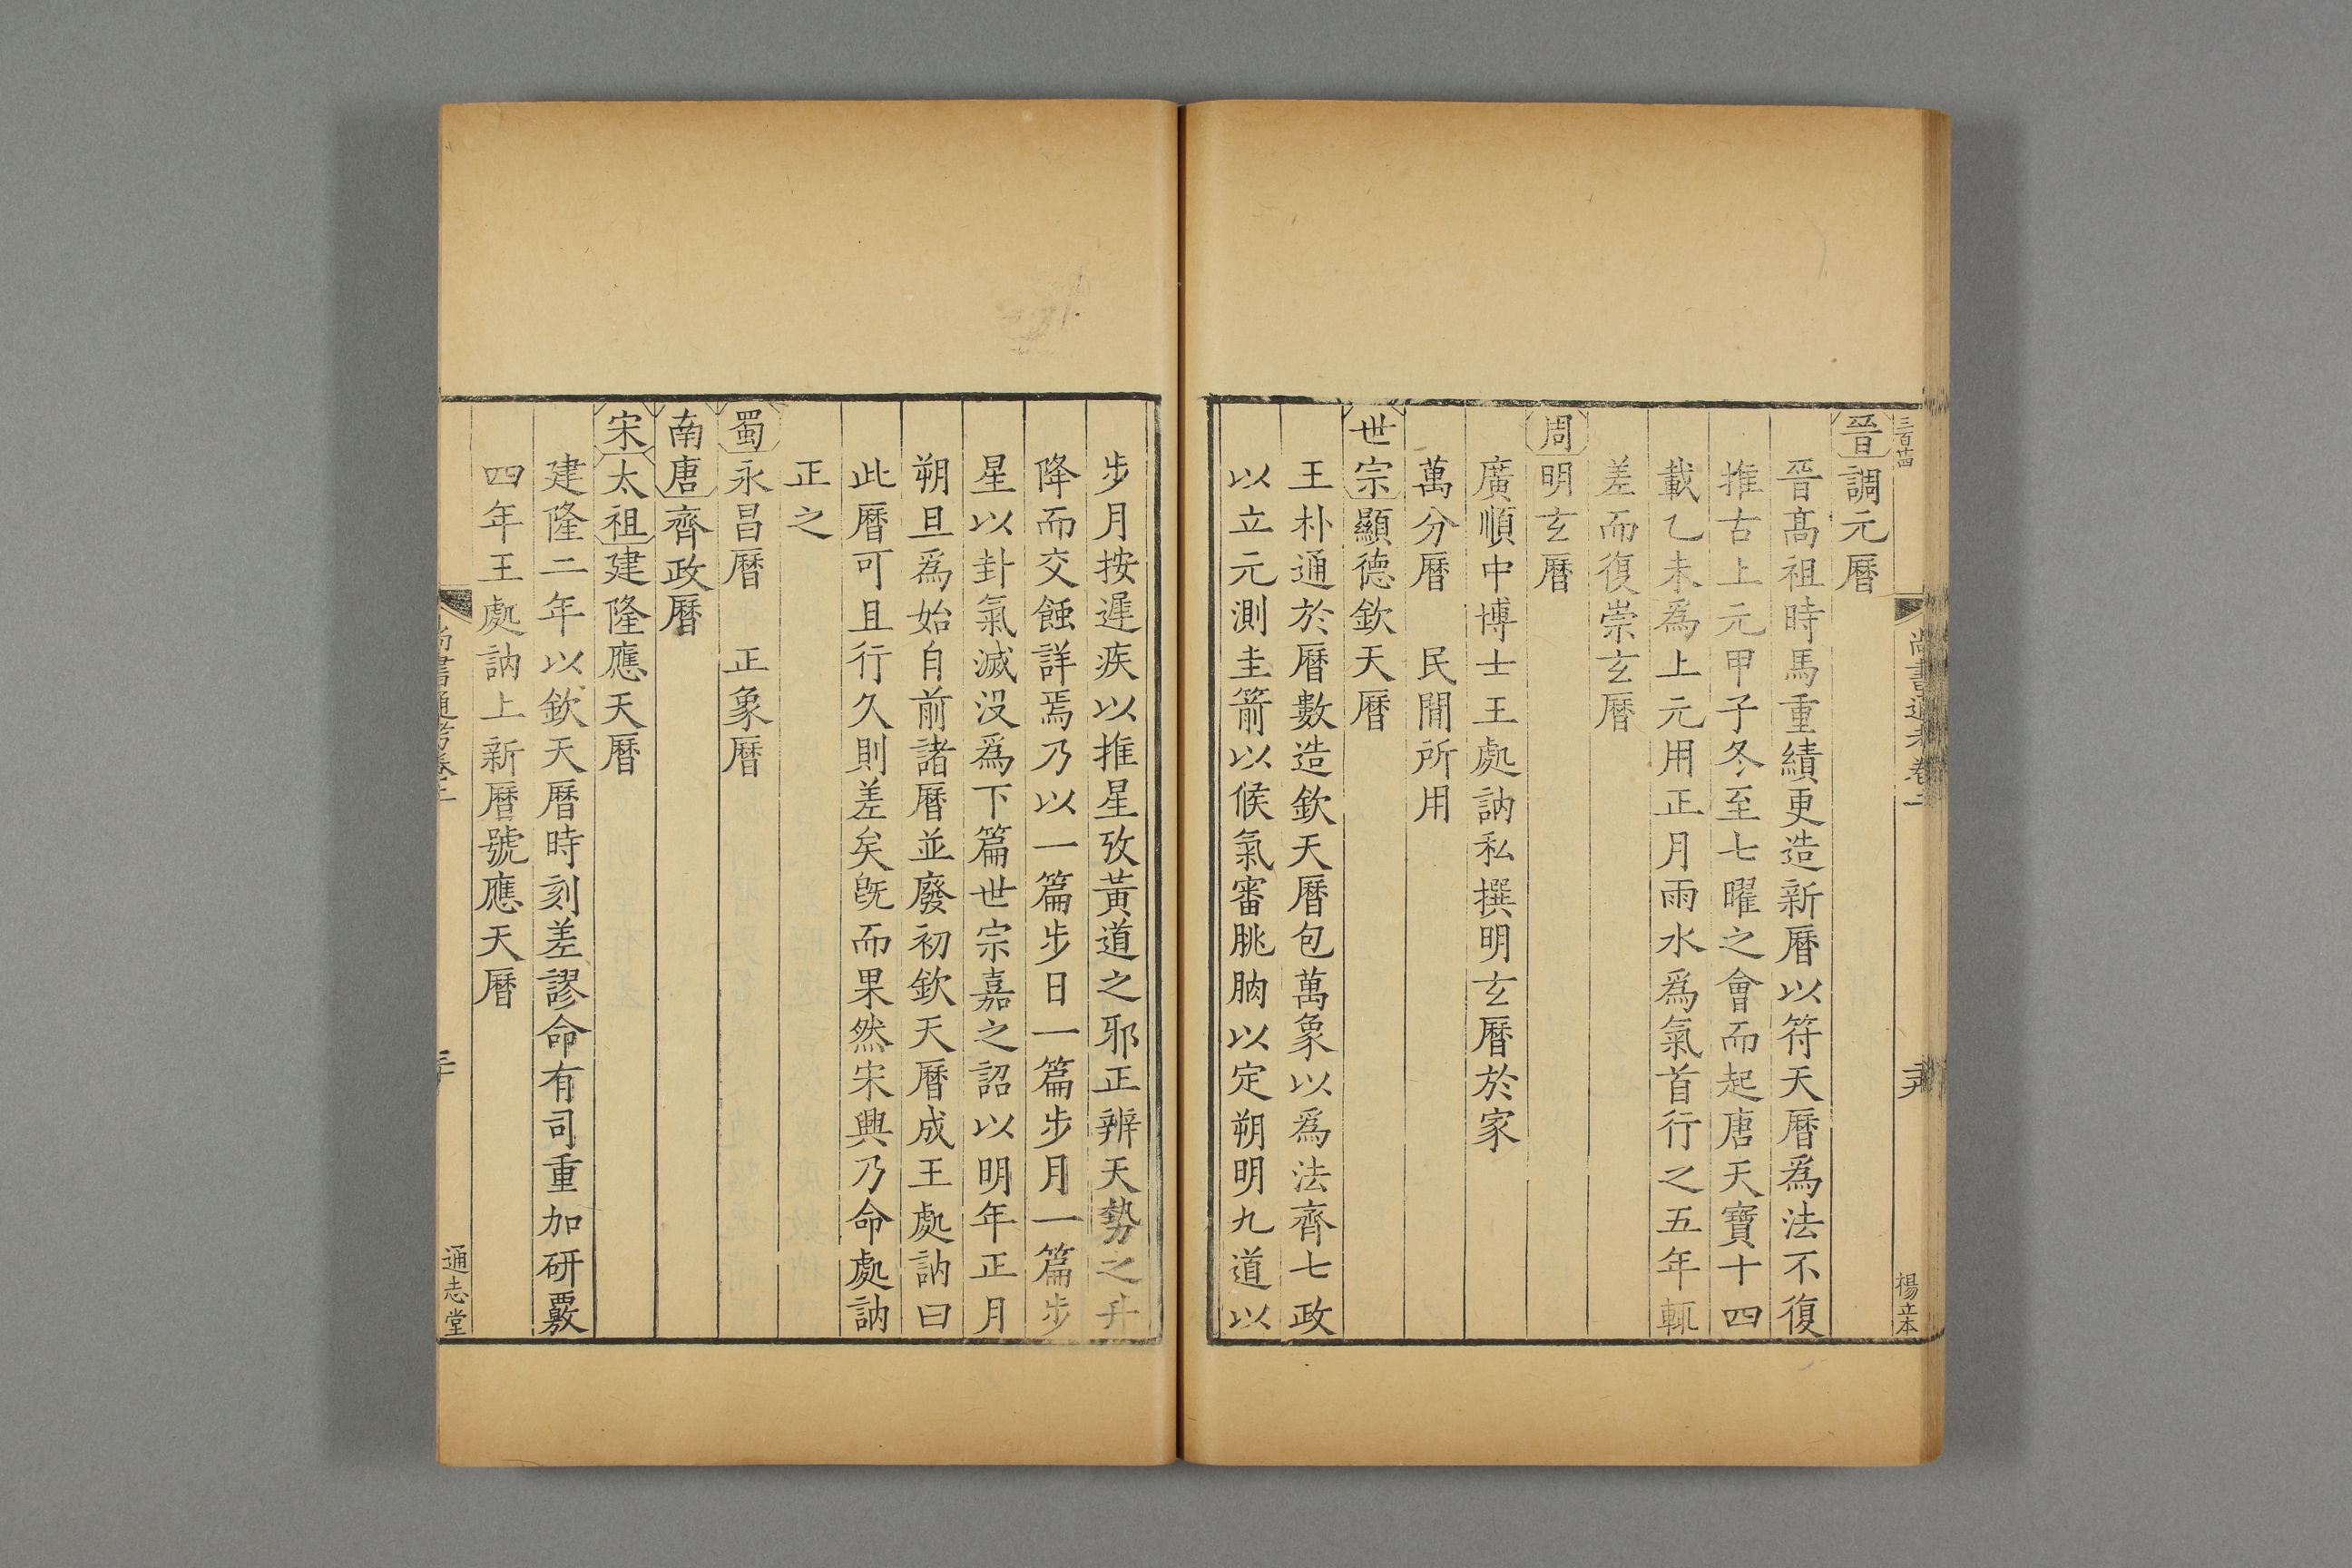 三百苗
尚書通考卷二
楊立本
晉調元曆
晉髙祖時馬重績更造新曆以符天曆爲法不復
推古上元甲子冬至七曜之會而起唐天寶十四
載乙未爲上元用正月雨水爲氣首行之五年輒
差而復崇玄曆
周明玄曆
廣順中博士王處訥私撰明玄曆於家
萬分曆　民閒所用
世宗顯德欽天曆
王朴通於曆數造欽天曆包萬象以爲法齊七政
以立元測圭箭以候氣審朓朒以定朔明九道以
步月按遲疾以推星攷黃道之邪正辨天勢之升
降而交蝕詳焉乃以一篇步日一篇步月一篇步
星以卦氣滅没爲下篇世宗嘉之詔以明年正月
朔旦爲始自前諸曆並廢初欽天曆成王處訥曰
此曆可且行久則差矣旣而果然宋興乃命處訥
正之
蜀永昌曆　正象曆
南唐齊政曆
宋太祖建隆應天曆
建隆二年以欽天曆時刻差謬命有司重加研覈
四年王處訥上新曆號應天曆
尚書通考卷二
通志堂